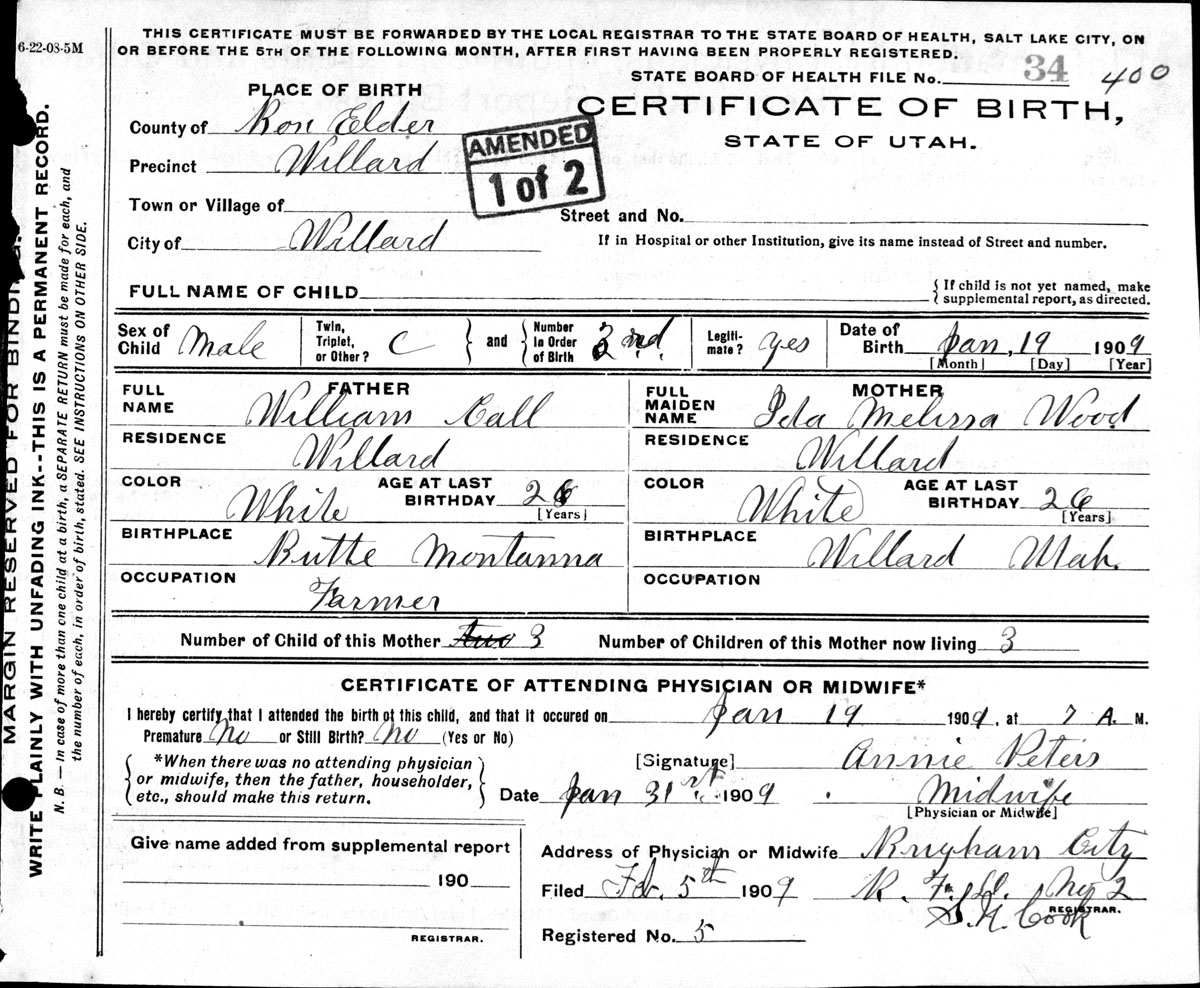 6-22-08-5M
THIS CERTIFICATE MUST BE FORWARDED BY THE LOCAL REGISTRAR TO THE STATE BOARD OF HEALTH, SALT LAKE CITY, ON
OR BEFORE THE 5TH OF THE FOLLOWING MONTH, AFTER FIRST HAVING BEEN PROPERLY REGISTERED.
STATE BOARD OF HEALTH FILE No. 34 400
PLACE OF BIRTH
CERTIFICATE OF BIRTH,
STATE OF UTAH.
County of Box Elder
AMENDED
1 of 2
Precinct Willard
Town or Village of
Street and No.
City of Willard
If in Hospital or other Institution, give its name instead of Street and number.
FULL NAME OF CHILD
{ If child is not yet named, make
supplemental report, as directed.
Sex of Child Male
Twin, Triplet, or Other? C } and { Number in Order of Birth 3nd
Legitimate? yes
Date of Birth Jan, 19 1909
[Month] [Day] [Year]
FATHER
FULL NAME William Call
RESIDENCE Willard
COLOR White AGE AT LAST BIRTHDAY 26
[Years]
BIRTHPLACE Butte Montanna
OCCUPATION Farmer
MOTHER
FULL MAIDEN NAME Ida Melissa Wood
RESIDENCE Willard
COLOR White AGE AT LAST BIRTHDAY 26
[Years]
BIRTHPLACE Willard Utah.
OCCUPATION
Number of Child of this Mother Two 3 Number of Children of this Mother now living 3
CERTIFICATE OF ATTENDING PHYSICIAN OR MIDWIFE*
I hereby certify that I attended the birth of this child, and that it occured on Jan 19 1909, at 7 A. M.
Premature No or Still Birth? No (Yes or No)
{ *When there was no attending physician
or midwife, then the father, householder,
etc., should make this return. }
[Signature] Annie Peters
Date Jan 31st 1909 . Midwife
[Physician or Midwife]
Give name added from supplemental report
190
REGISTRAR.
Address of Physician or Midwife Brigham City
Filed Feb. 5th 1909 R. F. D. No 2
S. N. Cook
REGISTRAR.
Registered No. 5
MARGIN RESERVED FOR BINDING.
WRITE PLAINLY WITH UNFADING INK--THIS IS A PERMANENT RECORD.
N. B. — In case of more than one child at a birth, a SEPARATE RETURN must be made for each, and
the number of each, in order of birth, stated. SEE INSTRUCTIONS ON OTHER SIDE.